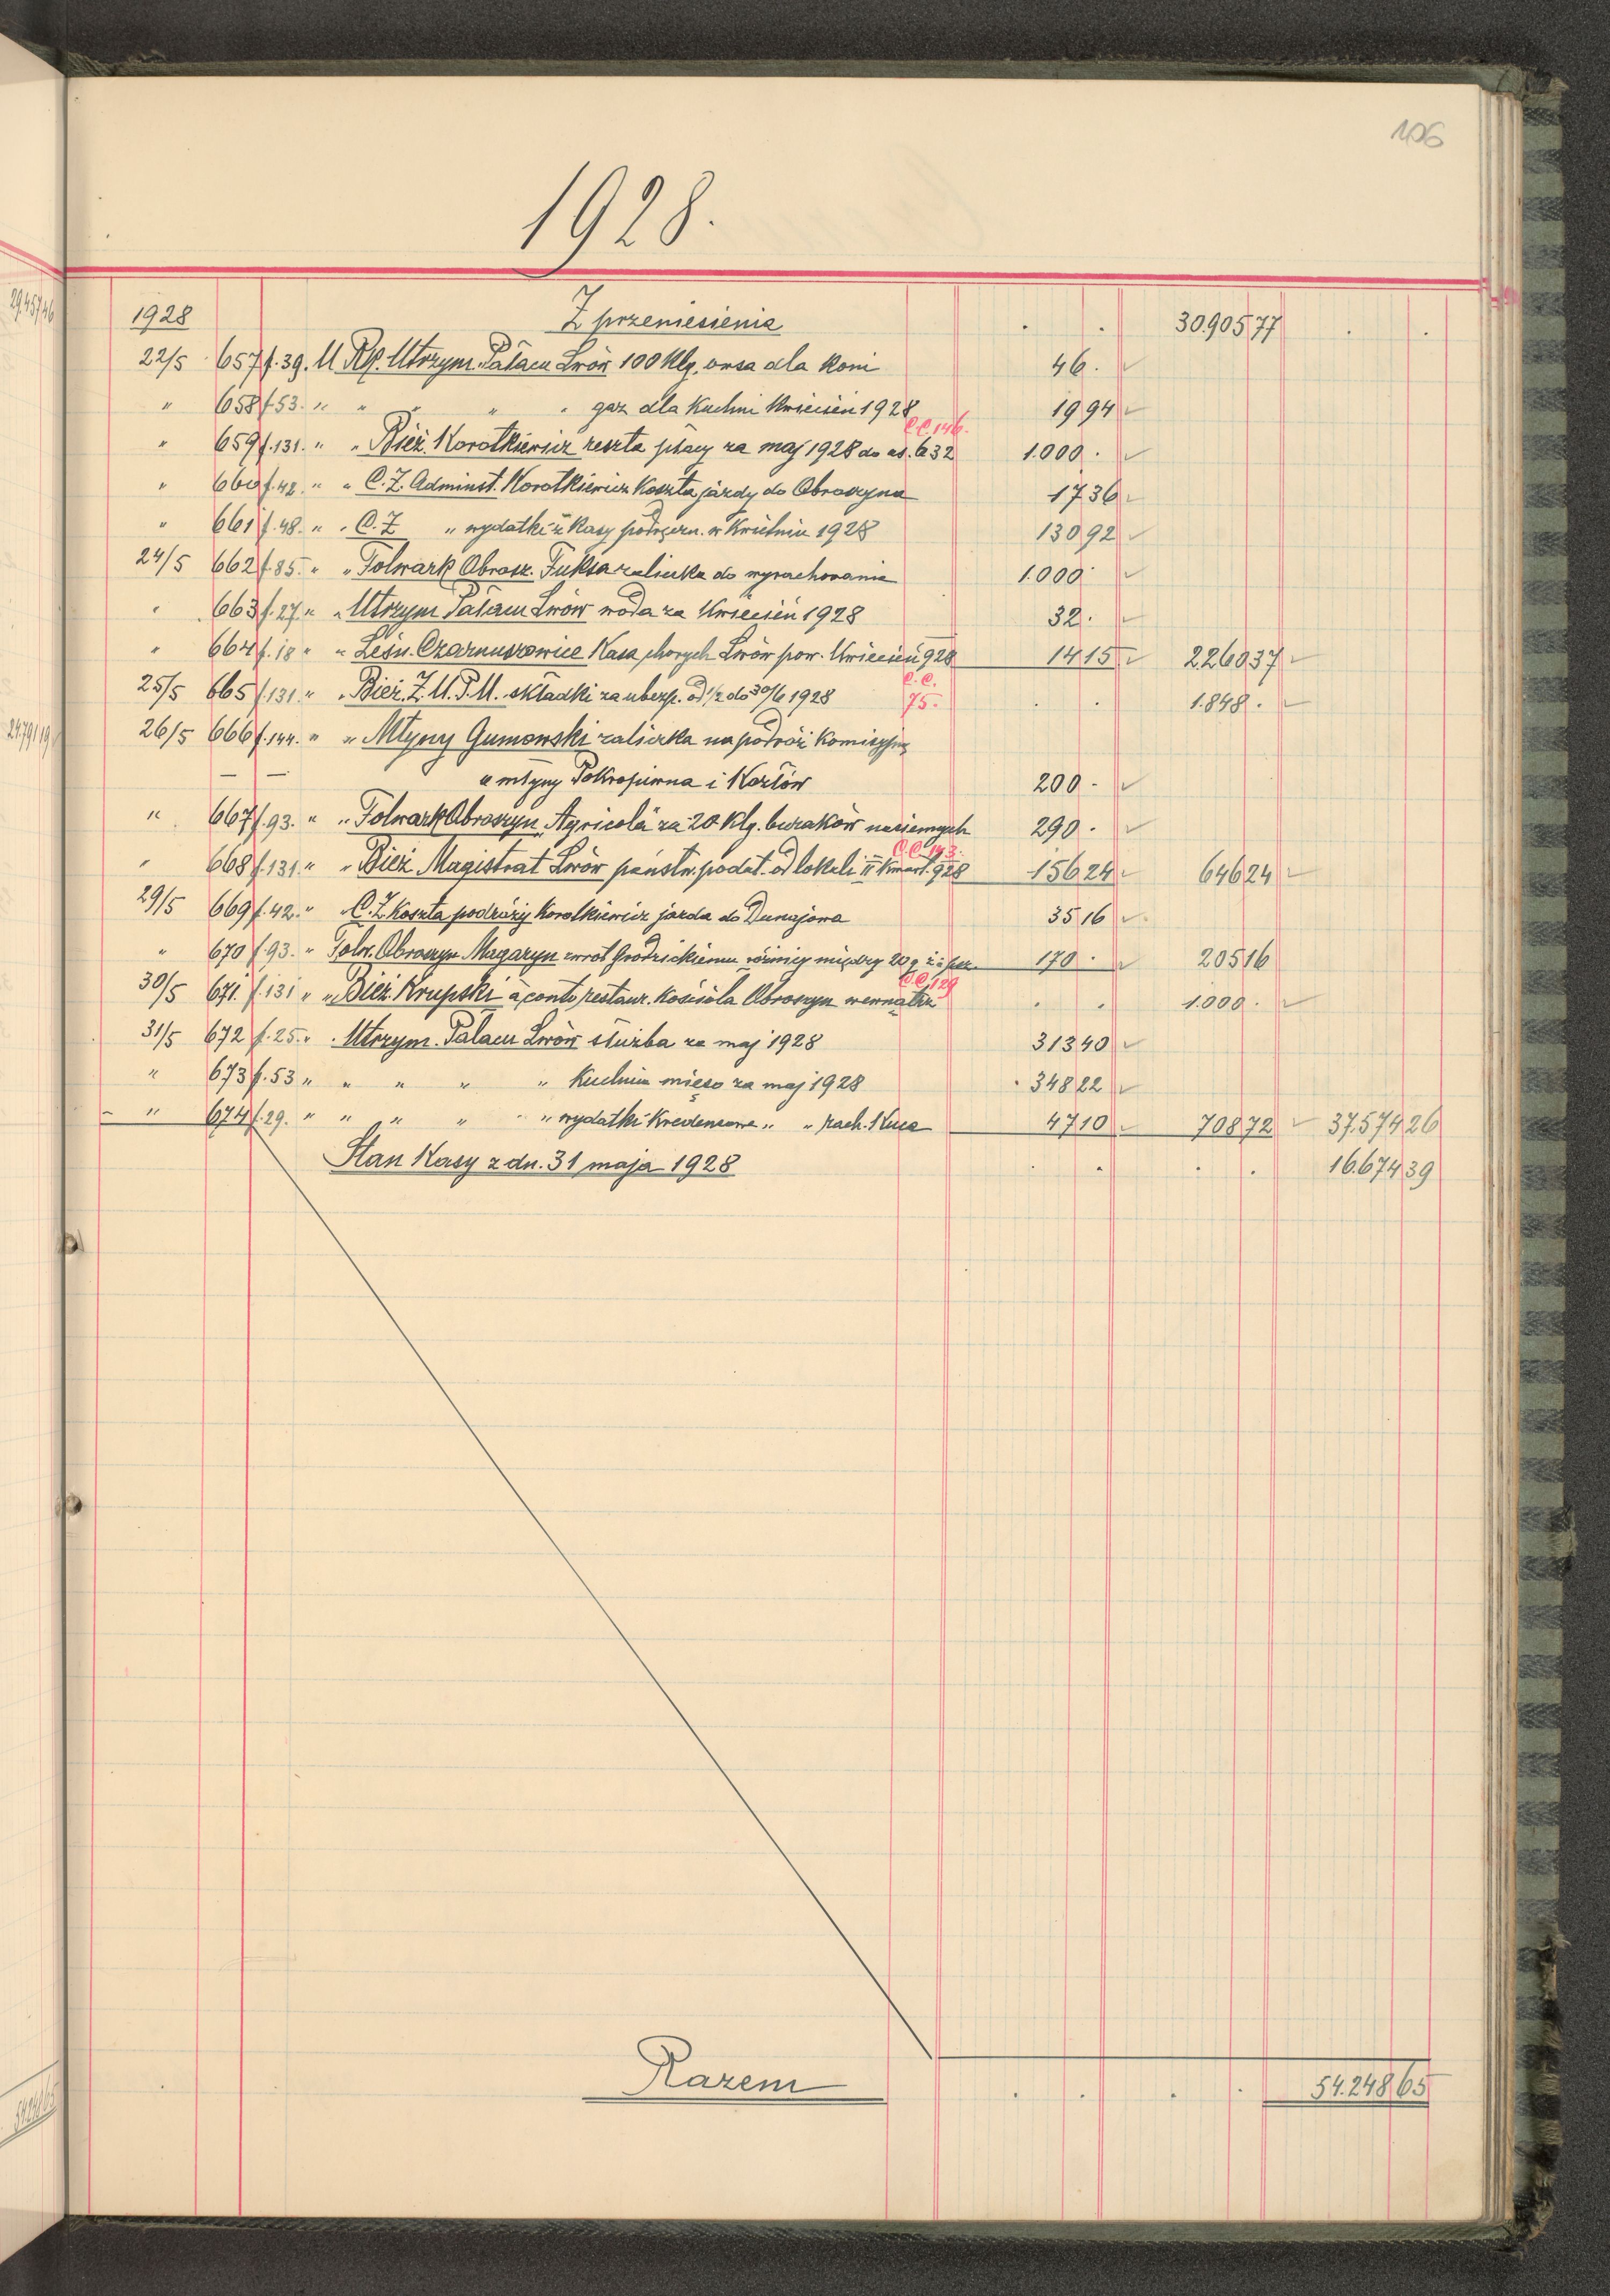 106
1928.
1928 Z przeniesienia . . 30.905 77 . .
22/5 657 f. 39. U Rp. Utrzym. Pałacu Lwów 100 Klg. owsa dla koni 46 .
" 658 f. 53. " " " " " gaz dla Kuchni Kwiecień 1928 19 94
C.C. 146.
" 659 f. 131. " " Bież. Korotkiewicz reszta płacy za maj 1928 do as. 632 1.000 .
" 660 f. 42. " " C.Z. Adminst. Korotkiewicz Koszta jazdy do Obroszyna 17 36
" 661 f. 48. " " C.Z. " wydatki z Kasy podręczn. w Kwietniu 1928 130 92
24/5 662 f. 85. " " Folwark Obrosz. Fuksa zaliczka do wyrachowania 1.000
" 663 f. 27. " " Utrzym. Pałacu Lwów woda za Kwiecień 1928 32 .
" 664 f. 18 " " Leśn. Czarnuszowice Kasa chorych Lwów pow. Kwiecień 928 14 15 2.260 37
C.C.
25/5 665 f. 131. " " Bież. Z.U.P.U. składki za ubezp. od 1/2 do 30/6 1928 75. . . 1.848 .
26/5 666 f. 144. " " Młyny Gumowski zaliczka na podróż Komisyjną
— — " młyny Pokropiwna i Kozłów 200 .
" 667 f. 93. " " Folwark Obroszyn "Agricola" za 20 Klg. buraków nasiennych 290 .
C.C. 143.
" 668 f. 131. " " Bież. Magistrat Lwów państw. podat. od lokali II Kwart. 928 156 24 646 24
29/5 669 f. 42. " " C.Z. Koszta podróży Korotkiewicz jazda do Dunajowa 35 16
" 670 f. 93. " Folw. Obroszyn Magazyn zwrot Grodzickiemu różnicy między 20 q ż. a psz. 170 . 205 16
C.C. 129
30/5 671. f. 131 " " Bież. Krupski à conto restaur. Kościoła Obroszyn wewnątrz . . 1.000 .
31/5 672 f. 25. " . Utrzym. Pałacu Lwów służba za maj 1928 313 40
" 673 f. 53 " " " " " Kuchnia mięso za maj 1928 348 22
" 674 f. 29. " " " " " wydatki Kredensowe " " rach. Kuca 47 10 708 72 37.574 26
Stan Kasy z dn. 31 maja 1928 . . . . 16.674 39
Razem . . . . 54.248 65